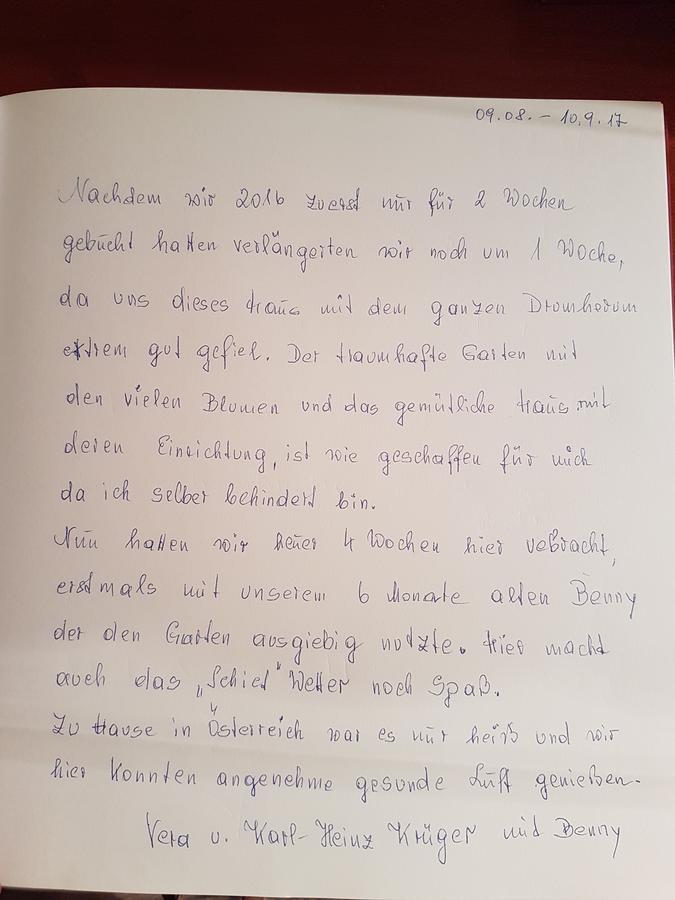 09.08. – 10.9.17
Nachdem wir 2016 zuerst nur für 2 Wochen
gebucht hatten verlängerten wir noch um 1 Woche,
da uns dieses Haus mit dem ganzen Drumherum
extrem gut gefiel. Der traumhafte Garten mit
den vielen Blumen und das gemütliche Haus mit
deren Einrichtung, ist wie geschaffen für mich
da ich selber behindert bin.
Nun hatten wir heuer 4 Wochen hier vebracht,
erstmals mit unserem 6 Monate alten Benny
der den Garten ausgiebig nutzte. Hier macht
auch das „Schiet" Wetter noch Spaß.
Zu Hause in Österreich war es nur heiß und wir
hier konnten angenehme gesunde Luft genießen.
Vera u. Karl-Heinz Krüger mit Benny